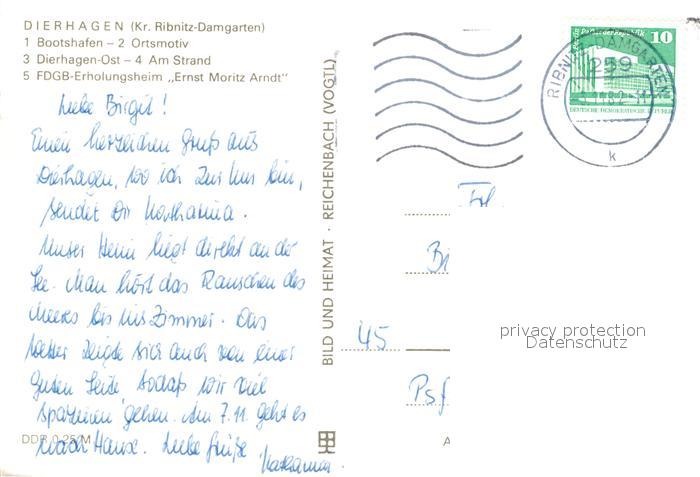 DIERHAGEN (Kr. Ribnitz-Damgarten)
1 Bootshafen – 2 Ortsmotiv
3 Dierhagen-Ost – 4 Am Strand
5 FDGB-Erholungsheim „Ernst Moritz Arndt"
Liebe Birgit!
Einen herzlichen Gruß aus
Dierhagen, wo ich zur Kur bin,
sendet Dir Katharina.
Unser Heim liegt direkt an der
See. Man hört das Rauschen des
Meeres bis ins Zimmer. Das
Wetter zeigte sich auch von einer
guten Seite sodaß wir viel
spazieren gehen. Am 7.11. geht es
nach Hause. Liebe Grüße
Katharina
DDR 0,25 M
BILD UND HEIMAT · REICHENBACH (VOGTL)
10
DEUTSCHE DEMOKRATISCHE REPUBLIK
RIBNITZ-DAMGARTEN
259
k
Frl
Bi
45
Psf
A
privacy protection
Datenschutz